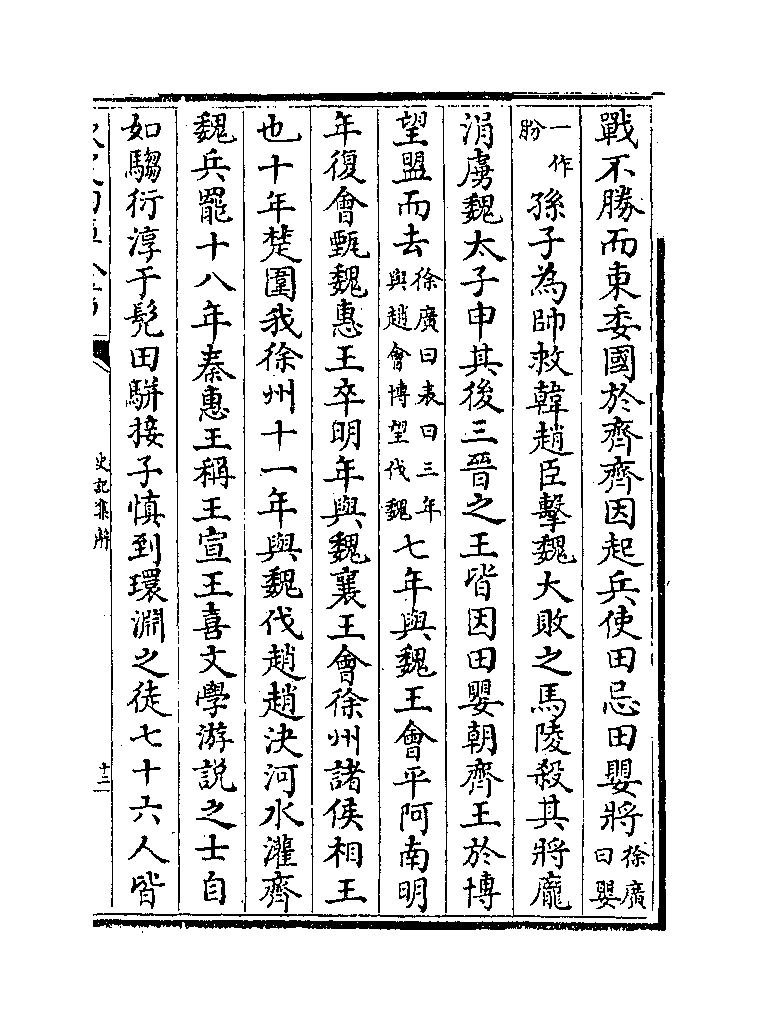 戰不勝而東委國於齊齊因起兵使田忌田嬰將徐廣曰嬰
一作肦孫子為帥救韓趙臣擊魏大敗之馬陵殺其將龐
涓虜魏太子申其後三晉之王皆因田嬰朝齊王於博
望盟而去徐廣曰表曰三年與趙會博望伐魏七年與魏王會平阿南明
年復會甄魏惠王卒明年與魏襄王會徐州諸侯相王
也十年楚圍我徐州十一年與魏伐趙趙決河水灌齊
魏兵罷十八年秦惠王稱王宣王喜文學游說之士自
如騶衍淳于髡田駢接子慎到環淵之徒七十六人皆
史記集解
十二